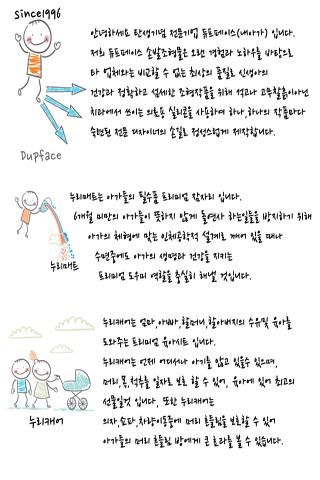 Since1996
안녕하세요 탄생기념 전문기업 듀프페이스(내아가) 입니다.
저희 듀프페이스 손발조형물은 오랜 경험과 노하우을 바탕으로
타 업체와는 비교할 수 없는 최상의 품질로 신생아의
건강과 정확하고 섬세한 조형작품을 위해 석고나 고무찰흙이아닌
치과에서 쓰이는 의료용 실리콘을 사용하여 하나,하나의 작품마다
숙련된 전문 디자이너의 손길로 정성스럽게 제작합니다.
Dupface
누리매트는 아가들의 필수품 프리미엄 잠자리 입니다.
6개월 미만의 아가들이 뜻하지 않게 돌연사 하는일들을 방지하기 위해
아가의 체형에 맞는 인체공학적 설계로 깨어 있을 때나
수면중에도 아가의 생명과 건강을 지키는
프리미엄 도우미 역할을 충실히 해낼 것입니다.
누리매트
누리케어는 엄마,아빠,할머니,할아버지의 수유및 육아를
도와주는 프리미엄 유아시트 입니다.
누리케어는 언제 어디서나 아기를 안고 있을수 있으며,
머리,목,척추를 일자로 보호 할 수 있어, 육아에 있어 최고의
선물일것 입니다, 또한 누리케어는
의자,쇼파,차량이동중에 머리 흔들림을 보호할 수 있어
아가들의 머리 흔들림 방예게 큰 효과를 볼 수 있습니다.
누리케어